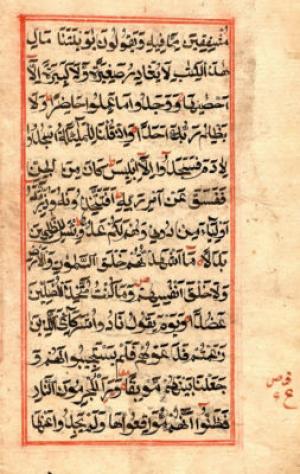 مُشْفِقِينَ مِمَّا فِيهِ وَيَقُولُونَ يَوَيْلَتَنَا مَالِ
هَذَا الْكِتَبِ لَا يُغَادِرُ صَغِيرَةً وَلَا كَبِيرَةً إِلَّا
أَحْصَيهَا وَوَجَدُوا مَا عَمِلُوا حَاضِرًا وَلَا
يَظْلِمُ رَبُّكَ أَحَدًا وَإِذْ قُلْنَا لِلْمَلَئِكَةِ اسْجُدُوا
لِآدَمَ فَسَجَدُوا إِلَّا إِبْلِيسَ كَانَ مِنَ الْجِنِّ
فَفَسَقَ عَنْ أَمْرِ رَبِّهِ أَفَتَتَّخِذُونَهُ وَذُرِّيَّتَهُ
أَوْلِيَاءَ مِنْ دُونِي وَهُمْ لَكُمْ عَدُوٌّ بِئْسَ لِلظَّلِمِينَ
بَدَلًا مَا أَشْهَدْتُهُمْ خَلْقَ السَّمَوَتِ وَالْأَرْضِ
وَلَا خَلْقَ أَنْفُسِهِمْ وَمَا كُنْتُ مُتَّخِذَ الْمُضِلِّينَ
عَضُدًا وَيَوْمَ يَقُولُ نَادُوا شُرَكَائِيَ الَّذِينَ
زَعَمْتُمْ فَدَعَوْهُمْ فَلَمْ يَسْتَجِيبُوا لَهُمْ وَ
جَعَلْنَا بَيْنَهُمْ مَوْبِقًا وَرَأَى الْمُجْرِمُونَ النَّارَ
فَظَنُّوا أَنَّهُمْ مُوَاقِعُوهَا وَلَمْ يَجِدُوا عَنْهَا